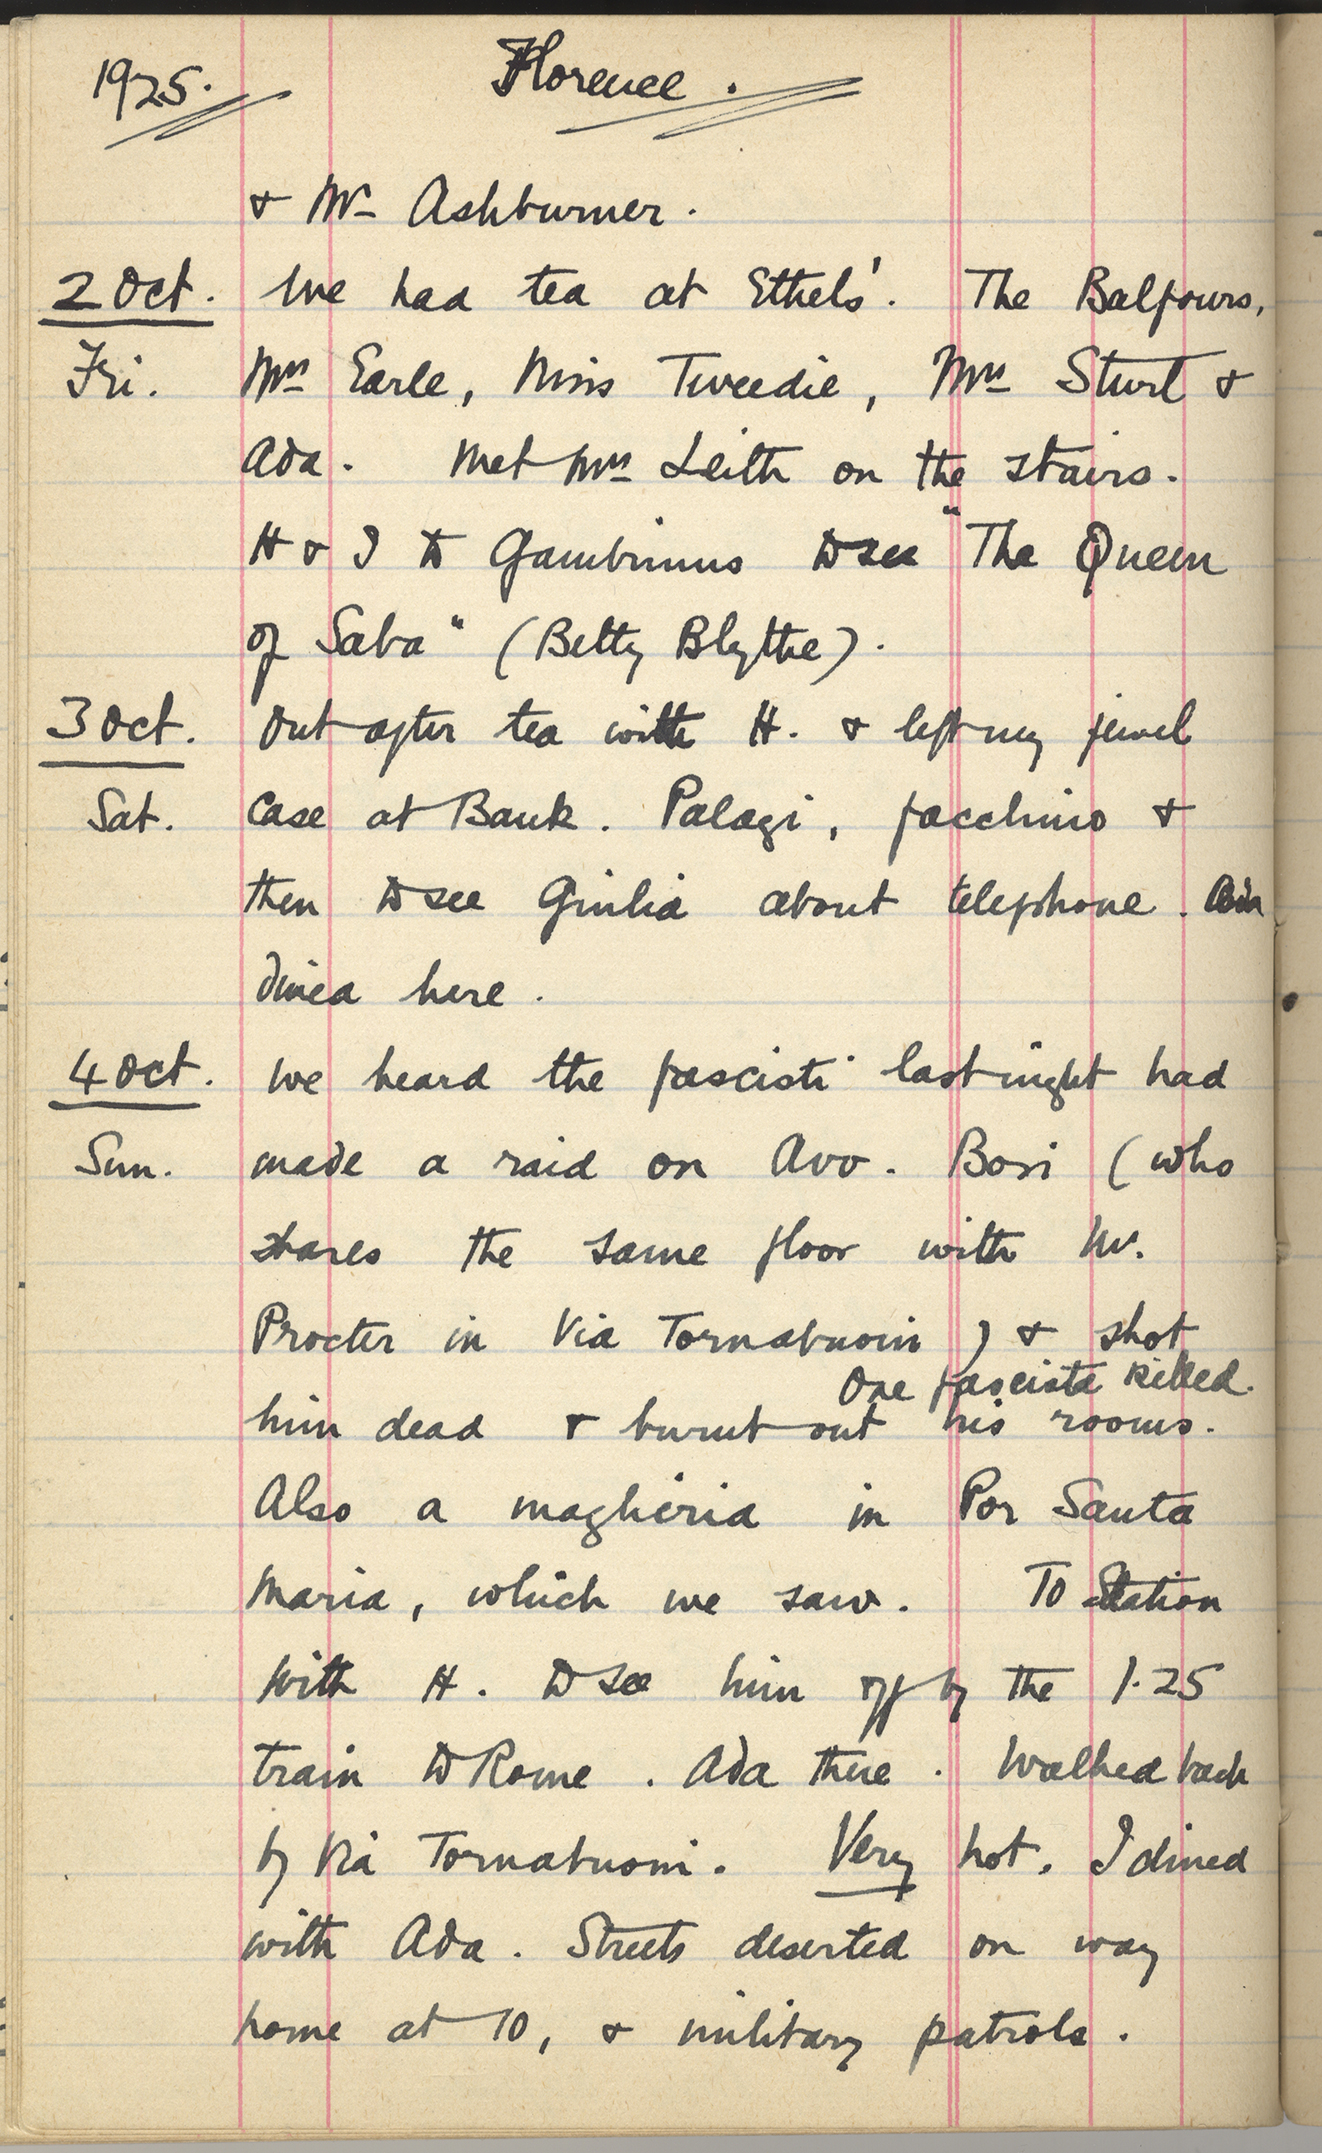 1925. Florence.
& Mr Ashburner.
2 Oct. We had tea at Ethels'. The Balfours,
Fri. Mrs Earle, Miss Tweedie, Mrs Sturt &
Ada. Met Mrs Leith on the stairs.
H & I to Gambrinus to see "The Queen
of Saba" (Betty Blythe).
3 Oct. Out after tea with H. & left my jewel
Sat. case at Bank. Palagi, facchino &
then to see Giulia about telephone. Ada
dined here.
4 Oct. We heard the fascisti last night had
Sun. made a raid on Avv. Bosi (who
shares the same floor with Mr.
Procter in Via Tornabuoni) & shot
One fascista killed.
him dead & burnt out his rooms.
Also a magheria in Por Santa
Maria, which we saw. To Station
with H. to see him off by the 1.25
train to Rome. Ada there. Walked back
by Via Tornabuoni. Very hot. I dined
with Ada. Streets deserted on way
home at 10, & military patrols.